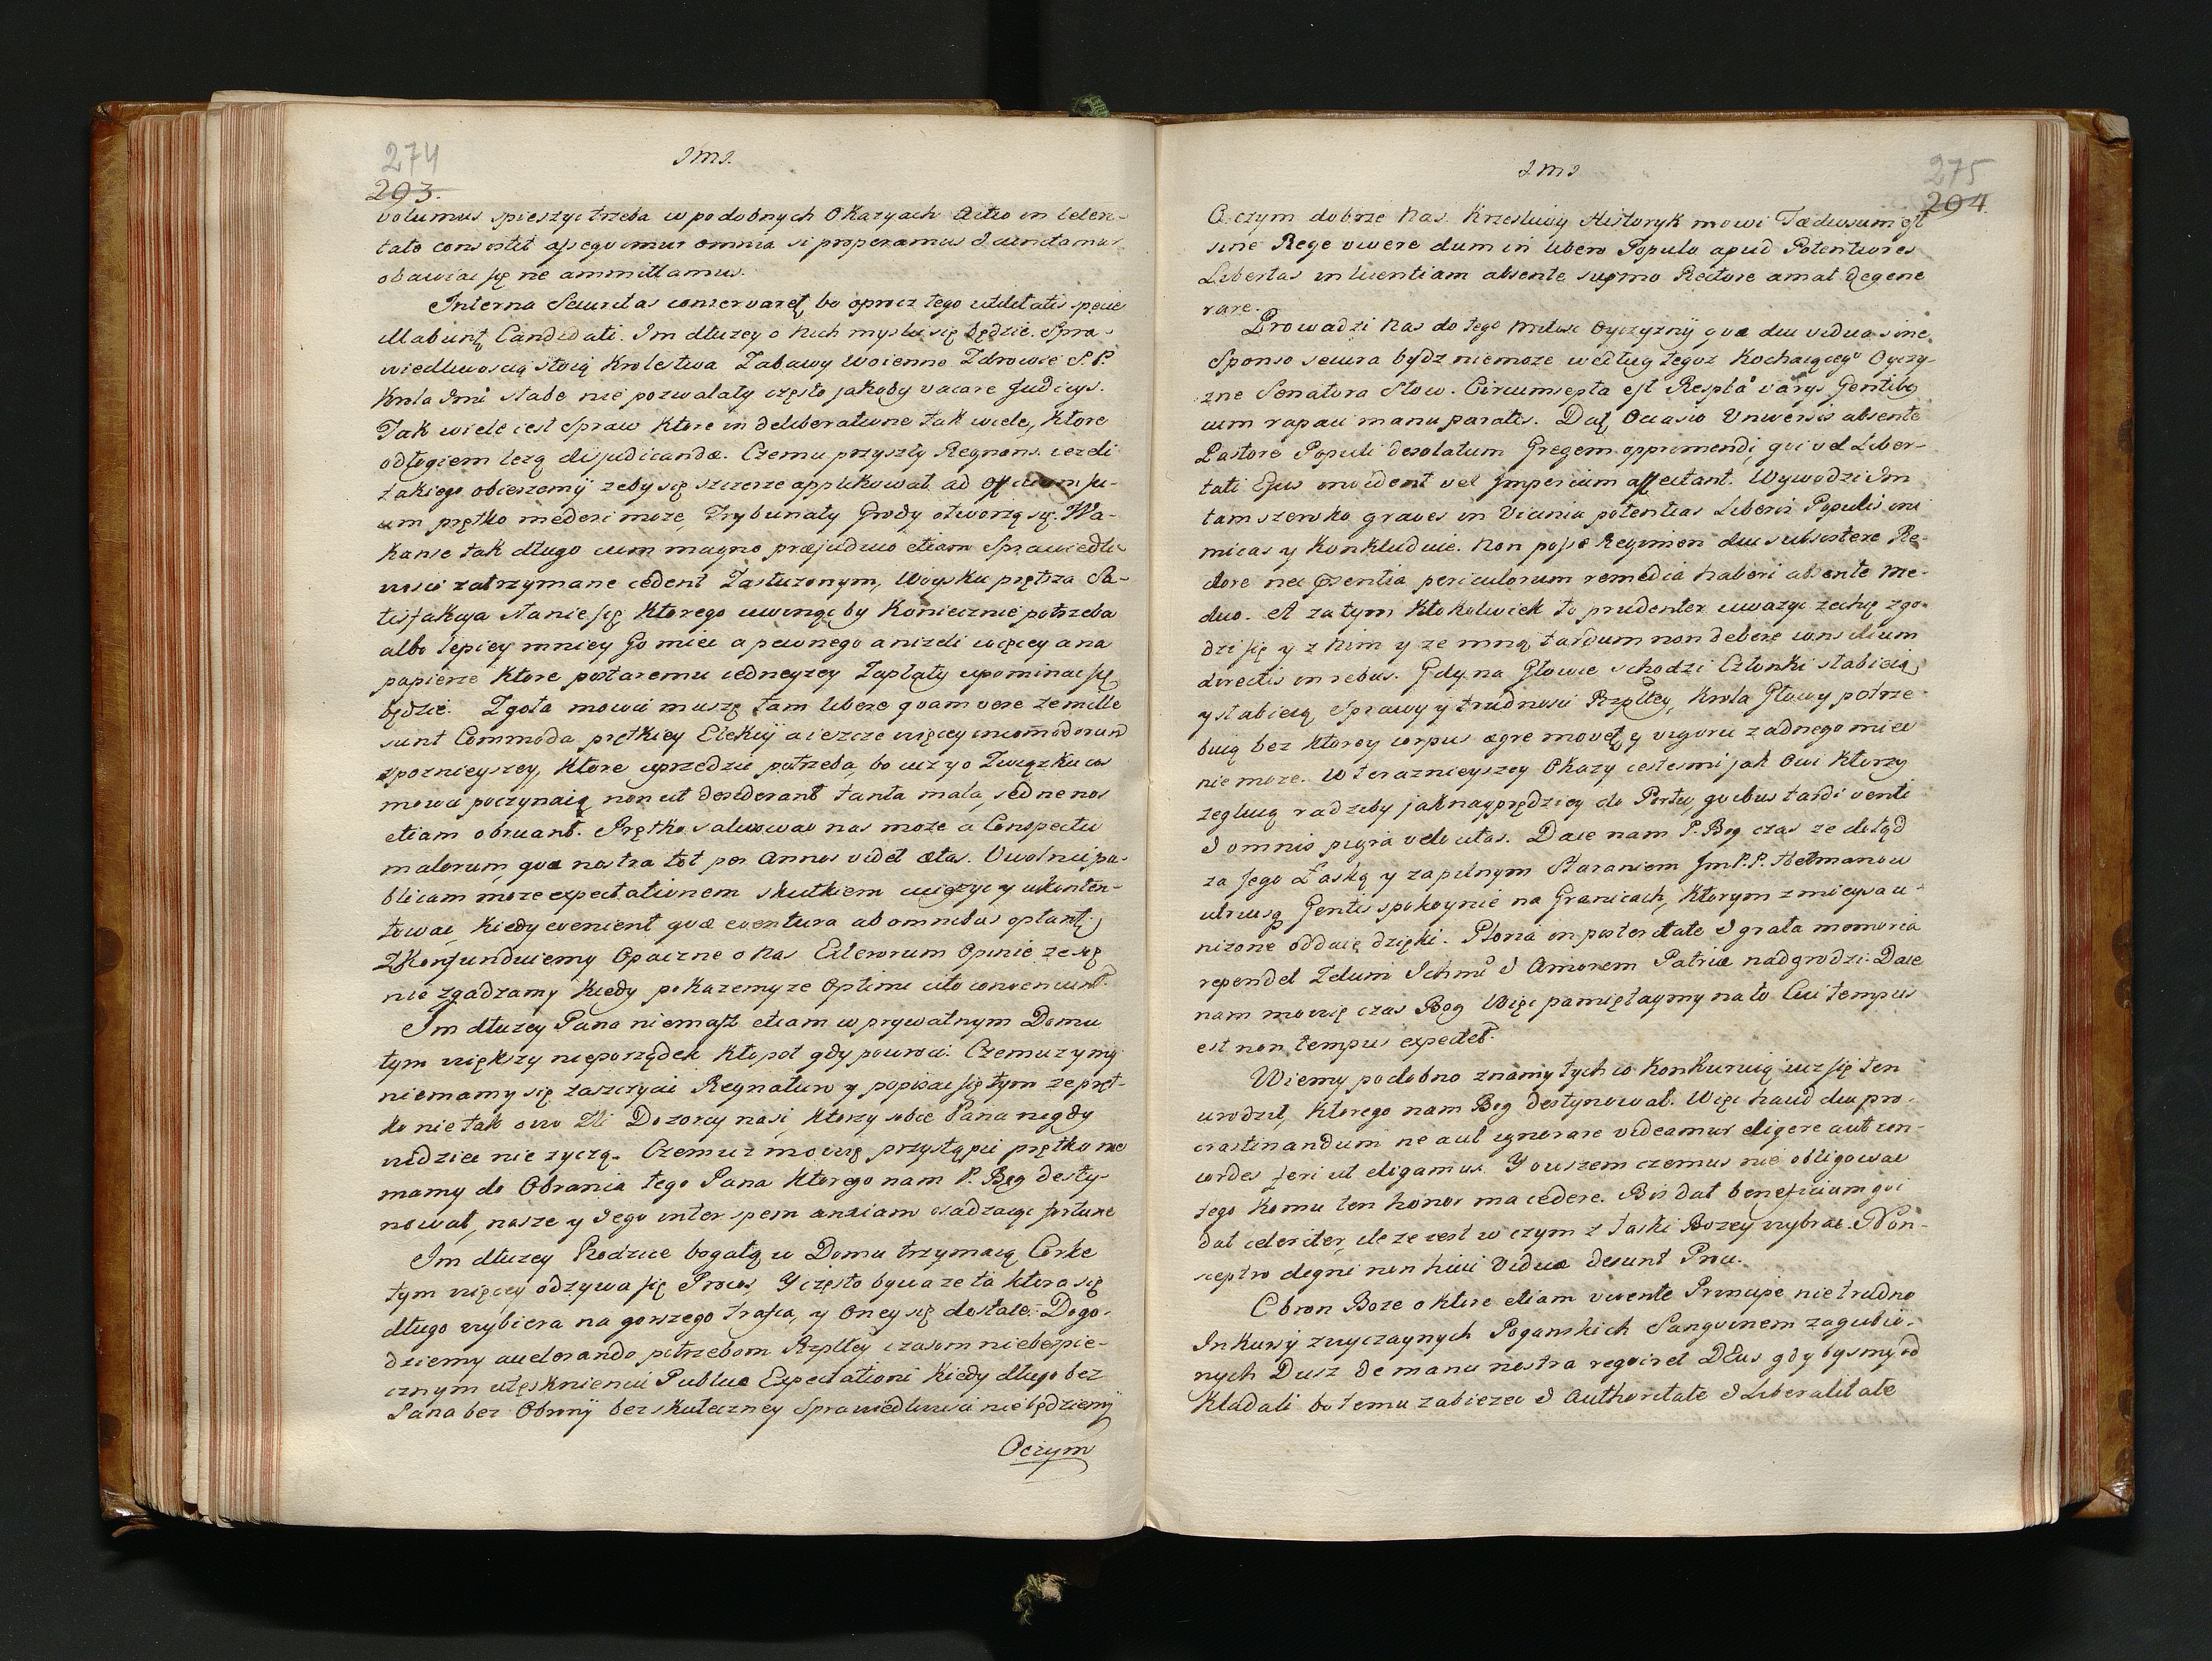 274
JmJ.
293.
volumus spieszyc trzeba w podobnych Okazyach Actio in celeri-
tate consistit assequimur omnia si properamus & cunctamur
obawiac się ne ammittamus.
Interna Securitas conservaretur bo oprocz tego utilitatis specie
illabuntur Candidati. Im dłuzey o nich myslic się będzie. Spra-
wiedliwoscią stoią Krolestwa Zabawy Woienne Zdrowie S. P.
Krola Jmci słabe nie pozwalały często jakoby vacare Judicijs.
Tak wiele iest Spraw Ktore in deliberatione tak wiele, Ktore
odłogiem lezą dijudicandæ. Czemu przyszły Regnans iezeli
takiego obierzemÿ zeby się szczerze applikował ad officium su-
um prętko mederi moze, Trybunały Grody otworzą się. Wa-
kanse tak długo cum magno præjudicio etiam Sprawiedli-
wosci zatrzymane cedent Zasłuzonym, Woysku prętsza Sa-
tisfakcya stanie się Ktorego uwinąc by Koniecznie potrzeba
albo lepiey mniey Go miec a pewnego anizeli więcey a na
papierze Ktore postaremu iedneyzey Zapłaty upominac się
będzie. Zgoła mowic muszę tam libere quam vere ze mille
sunt Commoda prętkiey Elekcÿi a ieszcze więcey incommodorum
zpoznieyszey, Ktore uprzedzic potrzeba, bo iuz y o Związku cos
mowic poczynaią non ut desiderant tanta mala, sed ne nos
etiam obruant. Prętko salwowac nas moze a Conspectu
malorum quæ nostra tot per Annos videt ætas. Uwolnic pu-
blicam moze expectationem skutkiem uięzyc y ukonten-
towac, Kiedy evenient quæ eventura ab omnibus optantur
Zkonfunduiemy Opaczne o nas Exterorum Opinie ze się
nie zgadzamy Kiedy pokazemy ze Optimi cito conveniunt.
Im dłuzey Pana niemasz etiam w prywatnym Domu
tym większy nieporządek kłopot gdy powroci. Czemuz y my
niemamy się zaszczycic Regnaturo y popisac się tym ze pręt-
ko nie tak owo Zli Dozorcy nasi, ktorzy sobie Pana nigdy
widziec nie zyczą. Czemuz mowię przystąpic prętko nie
mamy do Obrania tego Pana Ktorego nam P. Bog desty-
nował, nasze y Jego inter spem anxiam osadzaiąc fortune
Im dłuzey Rodzice bogatą w Domu trzymaią Corke
tym więcey odzywa się Procos, Y często bywa ze ta ktora się
długo wybiera na gorszego trafia, y Oney się dostaie. Dogo-
dziemy accelerando potrzebom Rzpltey czasom niebespie-
cznym utęsknieniu Publicæ Expectationi Kiedy długo bez
Pana bez Obronÿ bez skuteczney Sprawiedliwosci nie będziemÿ
Oczym
JmJ
275
294.
O czym dobrze nas Krzesliwÿ Historyk mowi Tædiosum est
sine Rege vivere dum in libero Populo apud Potentiores
Libertas in licentiam absente supmo Rectore amat degene
rare.
Prowadzi nas do tego miłosc OyczyznÿÏ quæ diu vidua sine
Sponso secura bydz niemoze według tegoz Kochaiącego Oyczy-
zne Senatora Słow. Circumsepta est Respla varys Gentibus
cum rapaci manu paratis. Datur Occasio Universis absente
Pastore Populi desolatum Gregem opprimendi, qui vel Liber-
tati Ejus invident vel Imperium affectant. Wywodzi Im
tam szeroko graves in Vicinia potentias Liberis Populis ini
micas y Konkluduie. Non posse Regimen diu subsistere Re-
ctore nec præsentia periculorum remedia haberi absente Me-
dico. A zatym Ktokolwiek to prudenter uwazyc zechce zgo-
dzi się y z nim y ze mną tardum non debere consilium
directis in rebus. Gdy na Głowie schodzi Członki słabieią,
y słabieią Sprawy y trudnosci Rzpltey, Krola Głowy potrze
buią bez Ktorey corpus ægre movetur y vigoru zadnego miec
nie moze. W teraznieyszey Okazy iestesmi jak Owi Ktorzy
zegluią radziby jaknayprędziey do Portu, quibus tardi venti
& omnis pigra velocitas. Daie nam P. Bog czas ze dotąd
za Jego Łaską y zapilnym Staraniem JmP.P. Hetmanow
utriusque Gentis spokoynie na Granicach, Ktorym z mieysca u-
nizone oddaię dzięki. Gloria in posteritate & grata memoria
rependet Zelum Ichmci & Amorem Patriæ nadgrodzi. Daie
nam mowię czas Bog Więc pamiętaymy na to Cui tempus
est non tempus expectet.
Wiemy podobno znamy tych co Konkuruią iuz się ten
urodził, Ktorego nam Bog destynował. Więc haud diu pro-
crastinandum ne aut ignorare videamur eligere aut con-
cordes fieri ut eligamus. Y owszem czemus nie obligowac
tego Komu ten honor ma cedere. Bis dat beneficium qui
dat celeriter, ile ze iest w czym z łaski Bozey wybrac. Non
sceptro digni non huic Viduæ desunt Proci.
Obron Boze o ktore etiam vivente Principe nie trudno
Inkursÿi zwyczaynych Poganskich Sanguinem zagubio-
nych Dusz de manu nostra requiret DEus gdy bysmÿ od
Kładali bo temu zabiezec & Authoritate & Liberalitate